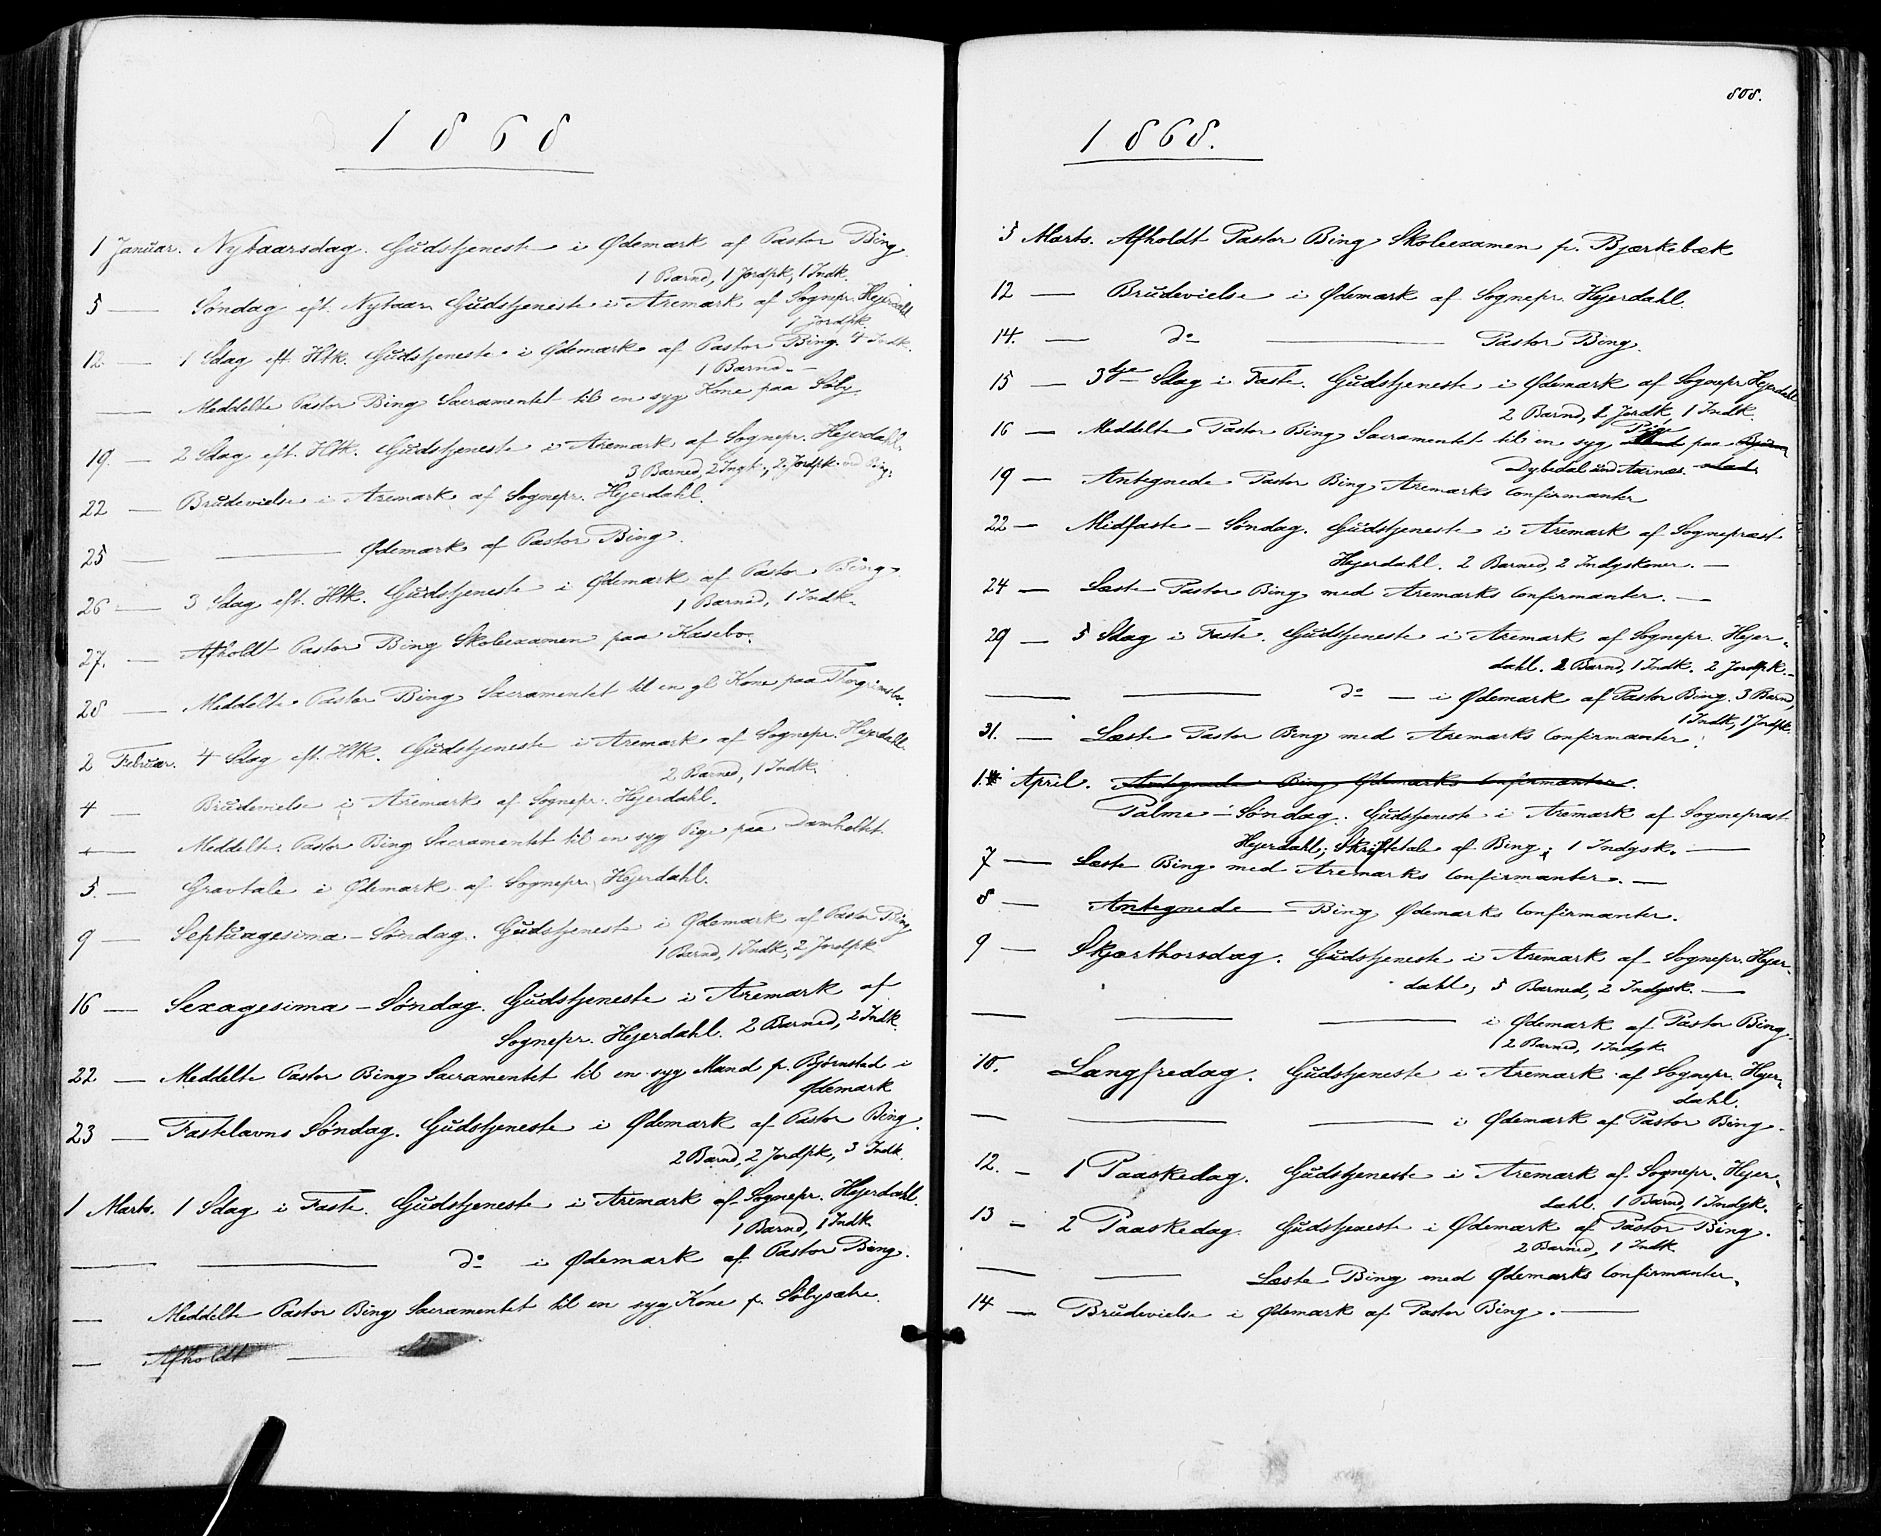 1868
1 Januar. Nytaarsdag. Gudstjeneste i Ødemark af Pastor Bing.
1 Barnd, 1 Jordpk, 1 Indk.
5 — Søndag eft. Nytaar Gudstjeneste i Aremark af Sognepr. Hejerdahl
1 Jordpk.
12. — 1 Sdag eft. Htk. Gudstjeneste i Ødemark af Pastor Bing. 4 Indk.
1 Barnd. —
— Meddelte Pastor Bing Sacramentet til en syg Kone paa Søby.
19. — 2 Sdag eft. Htk. Gudstjeneste i Aremark af Sognepr. Hejerdahl.
3 Barned, 2 Ingk., 2 Jordpk. ved Bing.
22 — Brudevielse i Aremark af Sognepr. Hejerdahl.
25 — — Ødemark af Pastor Bing.
26 — 3 Sdag eft. Htk. Gudstjeneste i Ødemark af Pastor Bing.
1 Barned, 1 Indk.
27. — Afholdt Pastor Bing Skoleexamen paa Kasebo.
28 — Meddelte Pastor Bing Sacramentet til en gl Kone paa
2 Februar. 4 Sdag eft. Htk. Gudstjeneste i Aremark af Sognepr. Hejerdahl
2 Barned, 1 Indk.
4 — Brudevielse i Aremark af Sognepr. Hejerdahl.
— Meddelte Pastor Bing Sacramentet til en syg Pige paa Damholtet
5. — Gravtale i Ødemark af Sognepr. Hejerdahl.
9 — Septuagesima – Søndag. Gudstjeneste i Ødemark af Pastor Bing
1 Barnd, 1 Indk, 2 Jordpk
16 — Sexagesima – Søndag. Gudstjeneste i Aremark af
Sognepr. Hejerdahl. 2 Barned, 2 Indk.
22 — Meddelte Pastor Bing Sacramentet til en syg Mand p. Bjørnstad i
Ødemark
23 — Fastelavns Søndag. Gudstjeneste i Ødemark af Pastor Bing.
2 Barnd, 2 Jordpk, 3 Indk.
1 Marts. 1 Sdag i Faste. Gudstjeneste i Aremark af Sognepr. Hejerdahl.
1 Barnd, 1 Indk
— — do i Ødemark af Pastor Bing.
— Meddelte Pastor Bing Sacramentet til en syg Kone p. Søbysætre.
— Afholdt —
808.
1868.
3 Marts. Afholdt Pastor Bing Skoleexamen p. Bjærkebæk
12 — Brudevielse i Ødemark af Sognepr. Hejerdahl.
14. — do — Pastor Bing.
15 — 3dje Sdag i Faste. Gudstjeneste i Ødemark af Sognepr Hejerdahl
2 Barnd, 2 Jordk, 1 Indk
Pige
16 — Meddelte Pastor Bing Sacramentet til en syg Mand paa Bjørn
Dybedal und Aarnæs. stad
19 — Antegnede Pastor Bing Aremarks Confirmanter
22 — Midfaste – Søndag. Gudstjeneste i Aremark af Sognepræst
Hejerdahl. 2 Barned, 2 Indgskoner. —
24 — Læste Pastor Bing med Aremarks Confirmanter. —
29 — 5 Sdag i Faste. Gudstjeneste i Aremark af Sognepr. Hejer-
dahl. 2 Barnd, 1 Indk. 2 Jordpk. —
— — do — i Ødemark af Pastor Bing. 3 Barnd,
1 Indk, 1 Jordpk.
31. — Læste Pastor Bing med Aremarks Confirmanter.
1. April. Antegnede Bing Ødemarks Confirmanter.
Palme – Søndag. Gudstjeneste i Aremark af Sognepræst
Hejerdahl; Skriftetale af Bing; 1 Indgsk. —
7 — Læste Bing med Aremarks Confirmanter. —
8 — Antegnede – Bing Ødemarks Confirmanter.
9 — Skjærthorsdag. Gudstjeneste i Aremark af Sognepr. Hejer-
dahl, 5 Barned, 2 Indgsk. —
— — — i Ødemark af Pastor Bing.
2 Barned, 1 Indgk.
10. Langfredag. Gudstjeneste i Aremark af Sognepr. Hejer-
dahl.
— — — i Ødemark af Pastor Bing.
12. — 1 Paaskedag. Gudstjeneste i Aremark af Sognepr. Hejer-
dahl. 1 Barnd, 1 Indgk.
13 — 2 Paaskedag Gudstjeneste i Ødemark af Pastor Bing.
2 Barned, 1 Indk
— — Læste Bing med Ødemarks Confirmanter.
14 — Brudevielse i Ødemark af Pastor Bing. —